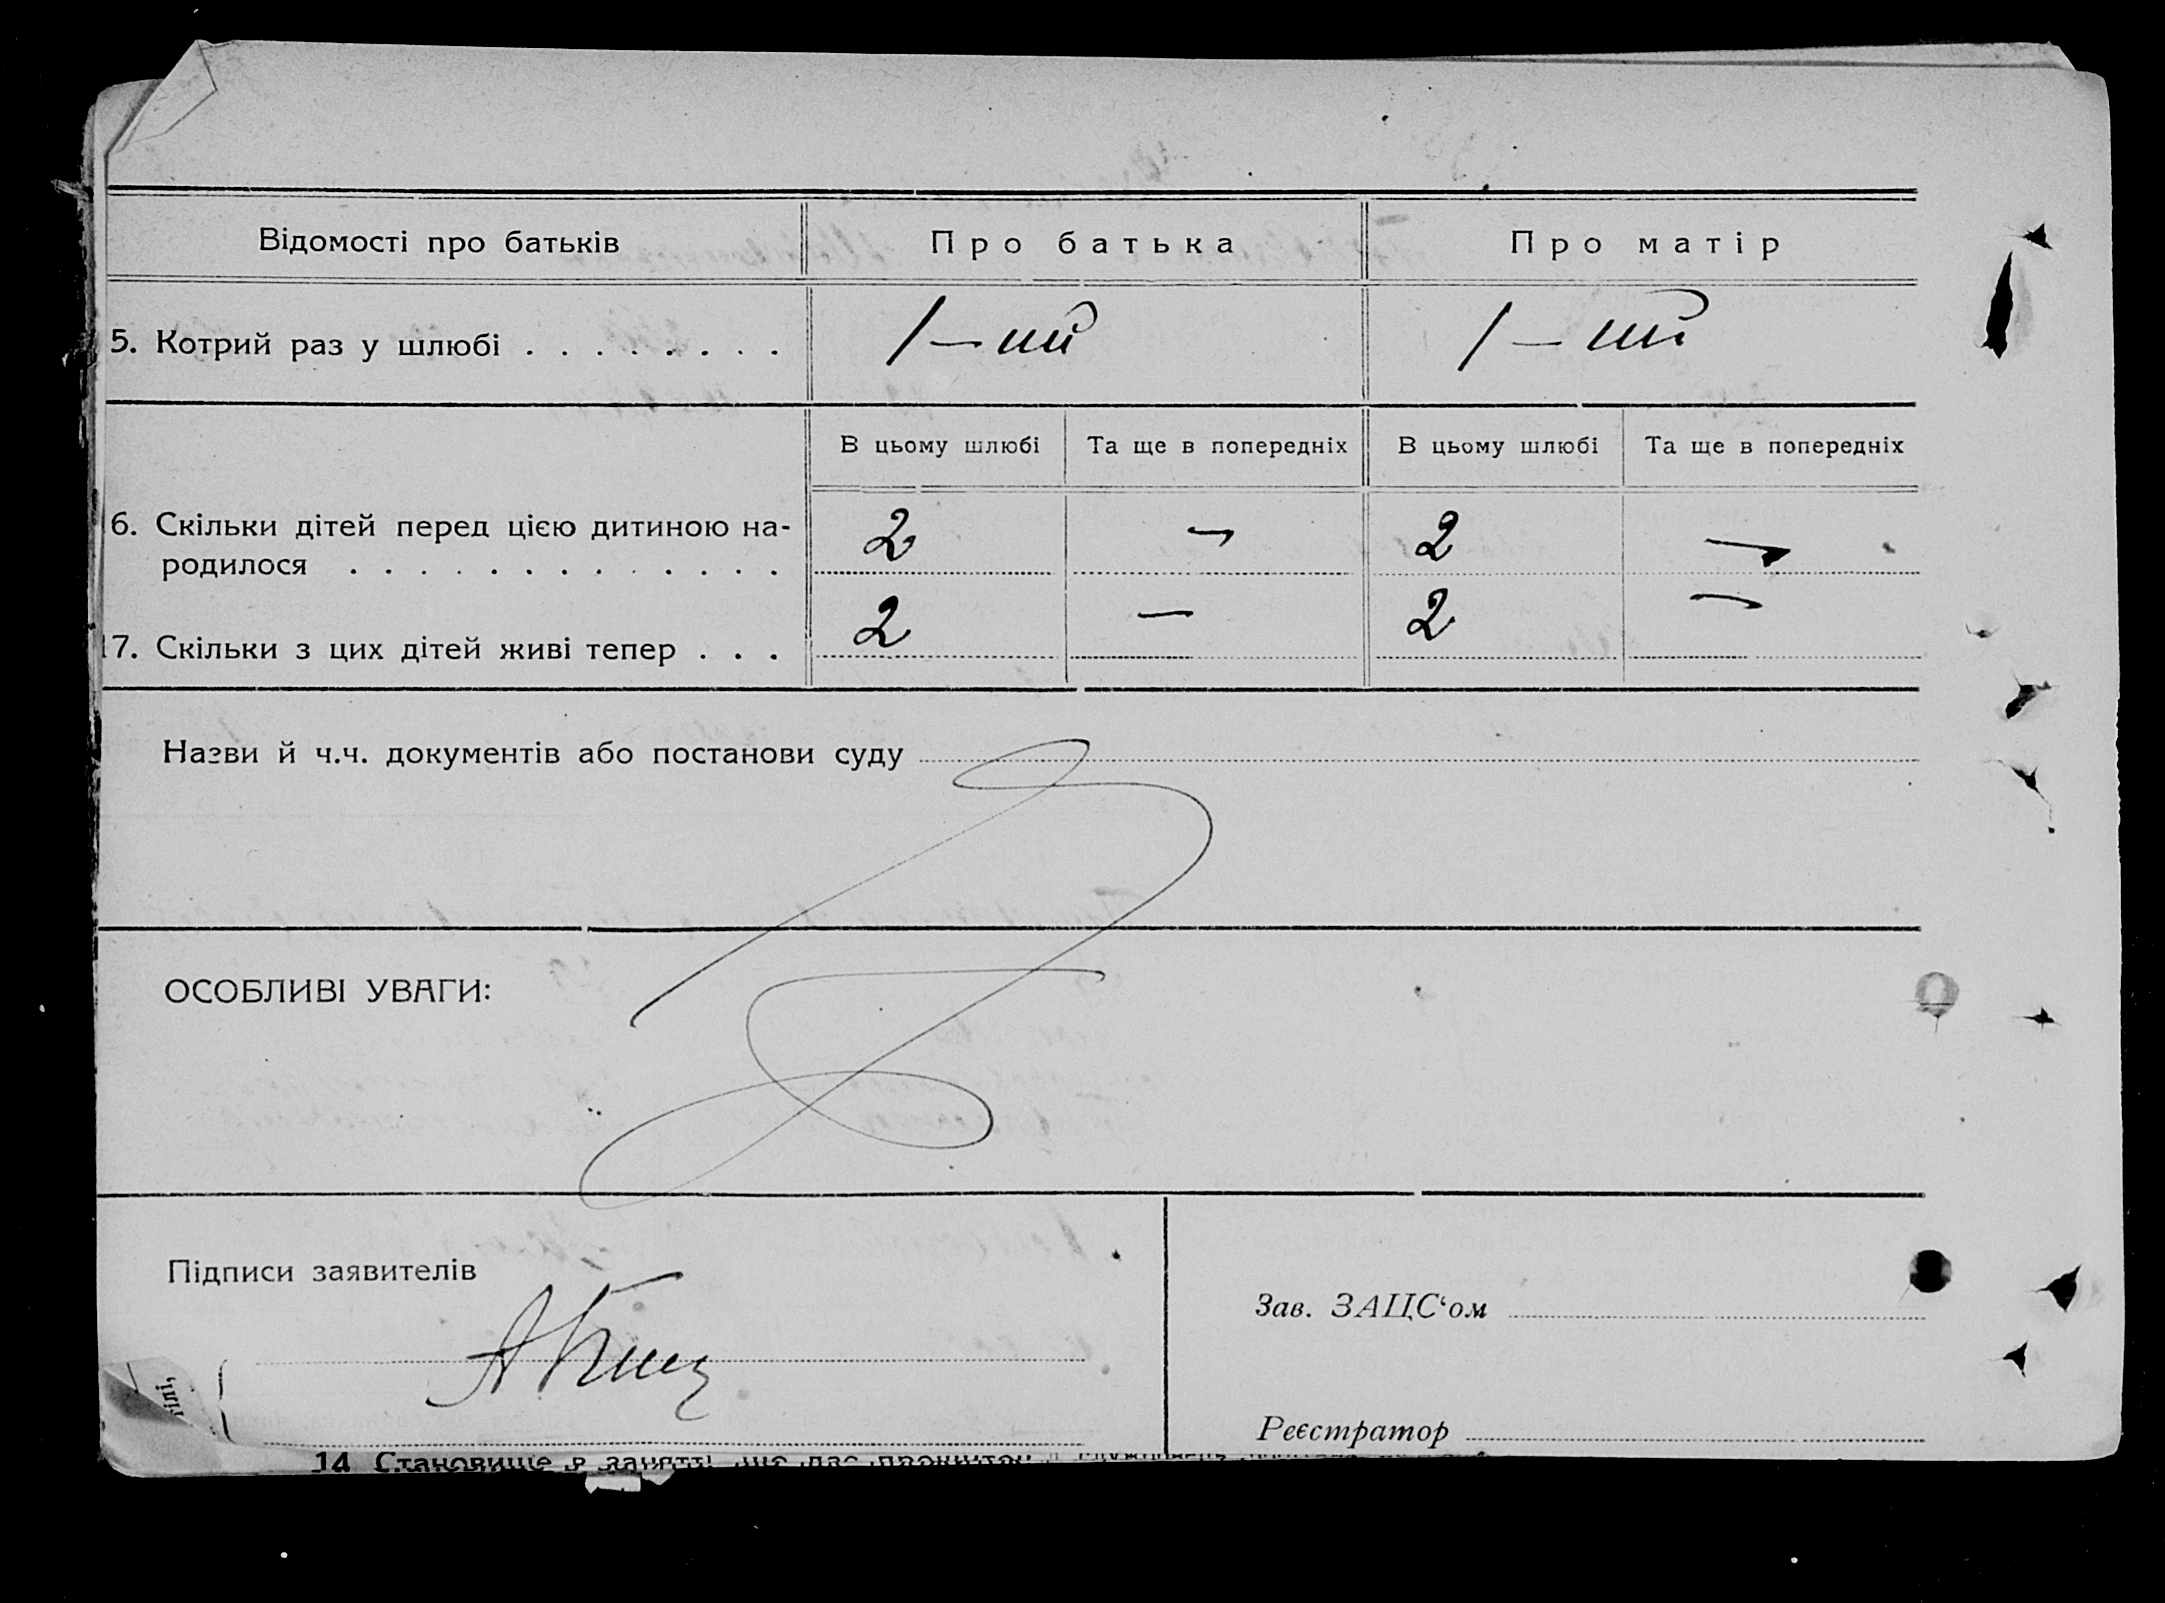 Відомості про батьків Про батька Про матір
5. Котрий раз у шлюбі . . . . . . . . 1-ий 1-ий
В цьому шлюбі Та ще в попередніх В цьому шлюбі Та ще в попередніх
6. Скільки дітей перед цією дитиною на-
родилося . . . . . . . . . . . . . . 2 — 2 —
17. Скільки з цих дітей живі тепер . . . 2 — 2 —
Назви й ч.ч. документів або постанови суду
ОСОБЛИВІ УВАГИ:
Підписи заявителів
Зав. ЗАЦС‘ом
Реєстратор
14 Становище в занятті, що дає прожиток